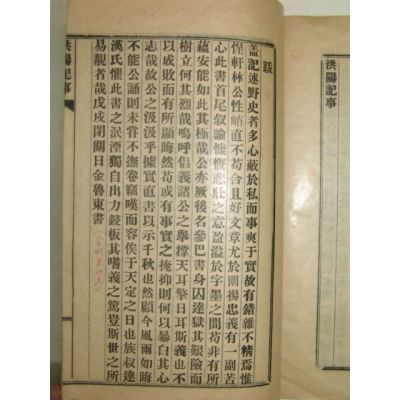 洪陽記事
跋
盖記述野史者多心蔽於私而事爽于實故有錯雜不精焉惟
惺軒林公性峭直不苟合且好文章尤於闡揚忠義有一副苦
心此書首尾叙論慷慨悲壯之意盈溢於字墨之間苟非有所
蘊安能如此其極哉公亦厥後名參巴書身囚達獄其艱險而
樹立何其烈哉嗚呼倡義諸公之擧撑天耳擎日耳斯義也不
以成敗而有所顯晦然苟或有事實之掩抑則何以暴白其心
志哉故公之汲汲乎據實直書以示千秋也然顧今風雨如晦
不能公誦則未嘗不撫卷竊嘆而容俟于天定之日也族叔達
漢氏懼此書之泯湮獨自出力鋟板其嗜義之篤豈斯世之所
易覯者哉戊戌閉關日金魯東書
洪陽記事